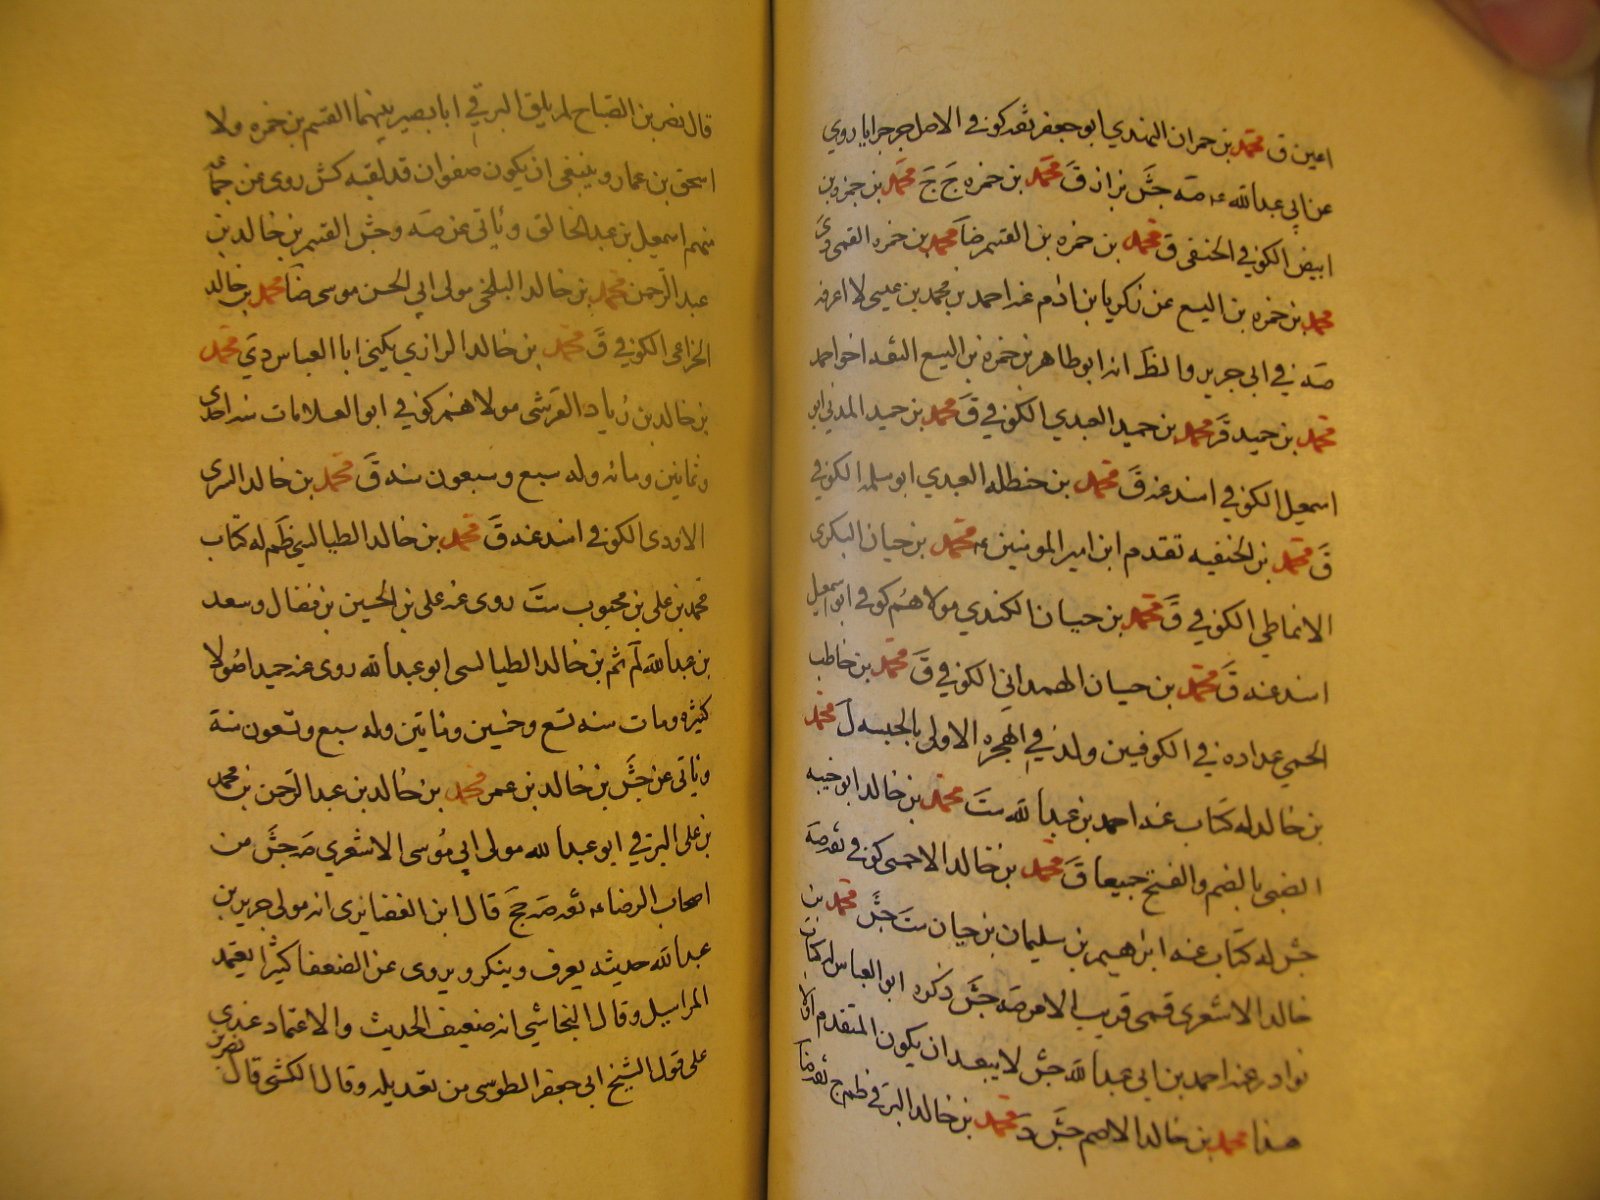 اعين ق محمد بن حمران النهدي ابو جعفر ثقه كوفي الاصل جرجرايا روي
عن ابي عبدالله عه صه جش بزاز ق محمد بن حمزه ج ج محمد بن حمزه بن
ابيض الكوفي الحنفي ق محمد بن حمزه بن القسم ضا محمد بن حمزه القمي دي
محمد بن حمزه بن اليسع عن زكريا بن ادم عنه احمد بن محمد بن عيسي لا اعرفه
صه في ابي جرير والظ انه ابو طاهر بن حمزه بن اليسع الثقه اخو احمد
محمد بن حميد ق محمد بن حميد العبدي الكوفي ق محمد بن حميد المدني ابو
اسمعيل الكوفي اسند عنه ق محمد بن حنظله العبدي ابو سلمه الكوفي
ق محمد بن الحنفيه تقدم ابن امير المومنين عه محمد بن حيان البكري
الانماطي الكوفي ق محمد بن حيان الكندي مولاهم كوفي ابو اسمعيل
اسند عنه ق محمد بن حسان الهمداني الكوفي ق محمد بن خاطب
الجمحي عداده في الكوفيين ولد في الهجره الاولي بالحبسه ل محمد
بن خالد له كتاب عنه احمد بن عبدالله ست محمد بن خالد ابو خبيه
الضبي بالضم والفتح جميعا ق محمد بن خالد الاحمسي كوفي ثقه صه
جش له كتاب عنه ابرهيم بن سليمان بن حيان ست جش محمد بن
خالد الاشعري قمي قريب الامر صه جش ذكره ابو العباس له كتاب
نوادر عنه احمد بن ابي عبدالله جش لا يبعد ان يكون المتقدم اولا
هذا محمد بن خالد الاصم جش د محمد بن خالد البرقي ظم ج ثقه ضا
قال نصر بن الصباح لم يلق البرقي ابا بصير بينهما القسم بن حمزه ولا
اسحق بن عمار وينبغي ان يكون صفوان قد لقيه كش روى عن جماعه
منهم اسمعيل بن عبد الخالق وياتي عن صه وجش القسم بن خالد بن
عبد الرحمن محمد بن خالد البلخي مولى ابي الحسن موسى ضا محمد بن خالد
الخزاعي الكوفي ق محمد بن خالد الرازي يكني ابا العباس دي محمد
بن خالد بن زياد القرشي مولاهم كوفي ابو العلامات سنه احدي
وثمانين ومائه وله سبع وسبعون سنه ق محمد بن خالد السري
الاودي الكوفي اسند عنه ق محمد بن خالد الطيالسي ظم له كتاب
محمد بن علي بن محبوب ست روى عنه علي بن الحسين بن فضال وسعد
بن عبدالله لم ثم بن خالد الطيالسي ابو عبدالله روى عنه حميد اصولا
كثيره ومات سنه تسع وخمسين ومائتين وله سبع وتسعون سنة
وياتي عن جش بن خالد بن عمر محمد بن خالد بن عبد الرحمن بن محمد
بن علي البرقي ابو عبدالله مولى ابي موسى الاشعري صه جش من
اصحاب الرضا عه ثقه صه جخ قال ابن الغضايري انه مولى جرير بن
عبدالله حديثه يعرف وينكر ويروى عن الضعفا كثيرا يعتمد
المراسيل وقال النجاشي انه ضعيف الحديث والاعتماد عندي
على قول الشيخ ابي جعفر الطوسي من تعديله وقال الكشي قال نصر بن